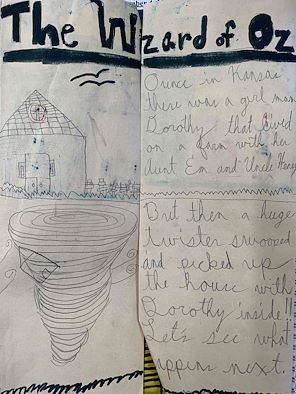 The Wizard of Oz
Ounce in Kansas
there was a girl
Dorothy that lived
on a farm with her
Aunt Em and Uncle Heny
But then a huge
twister swooped
and picked up
the house with
Dorothy inside!!
Let's see what
appins next.